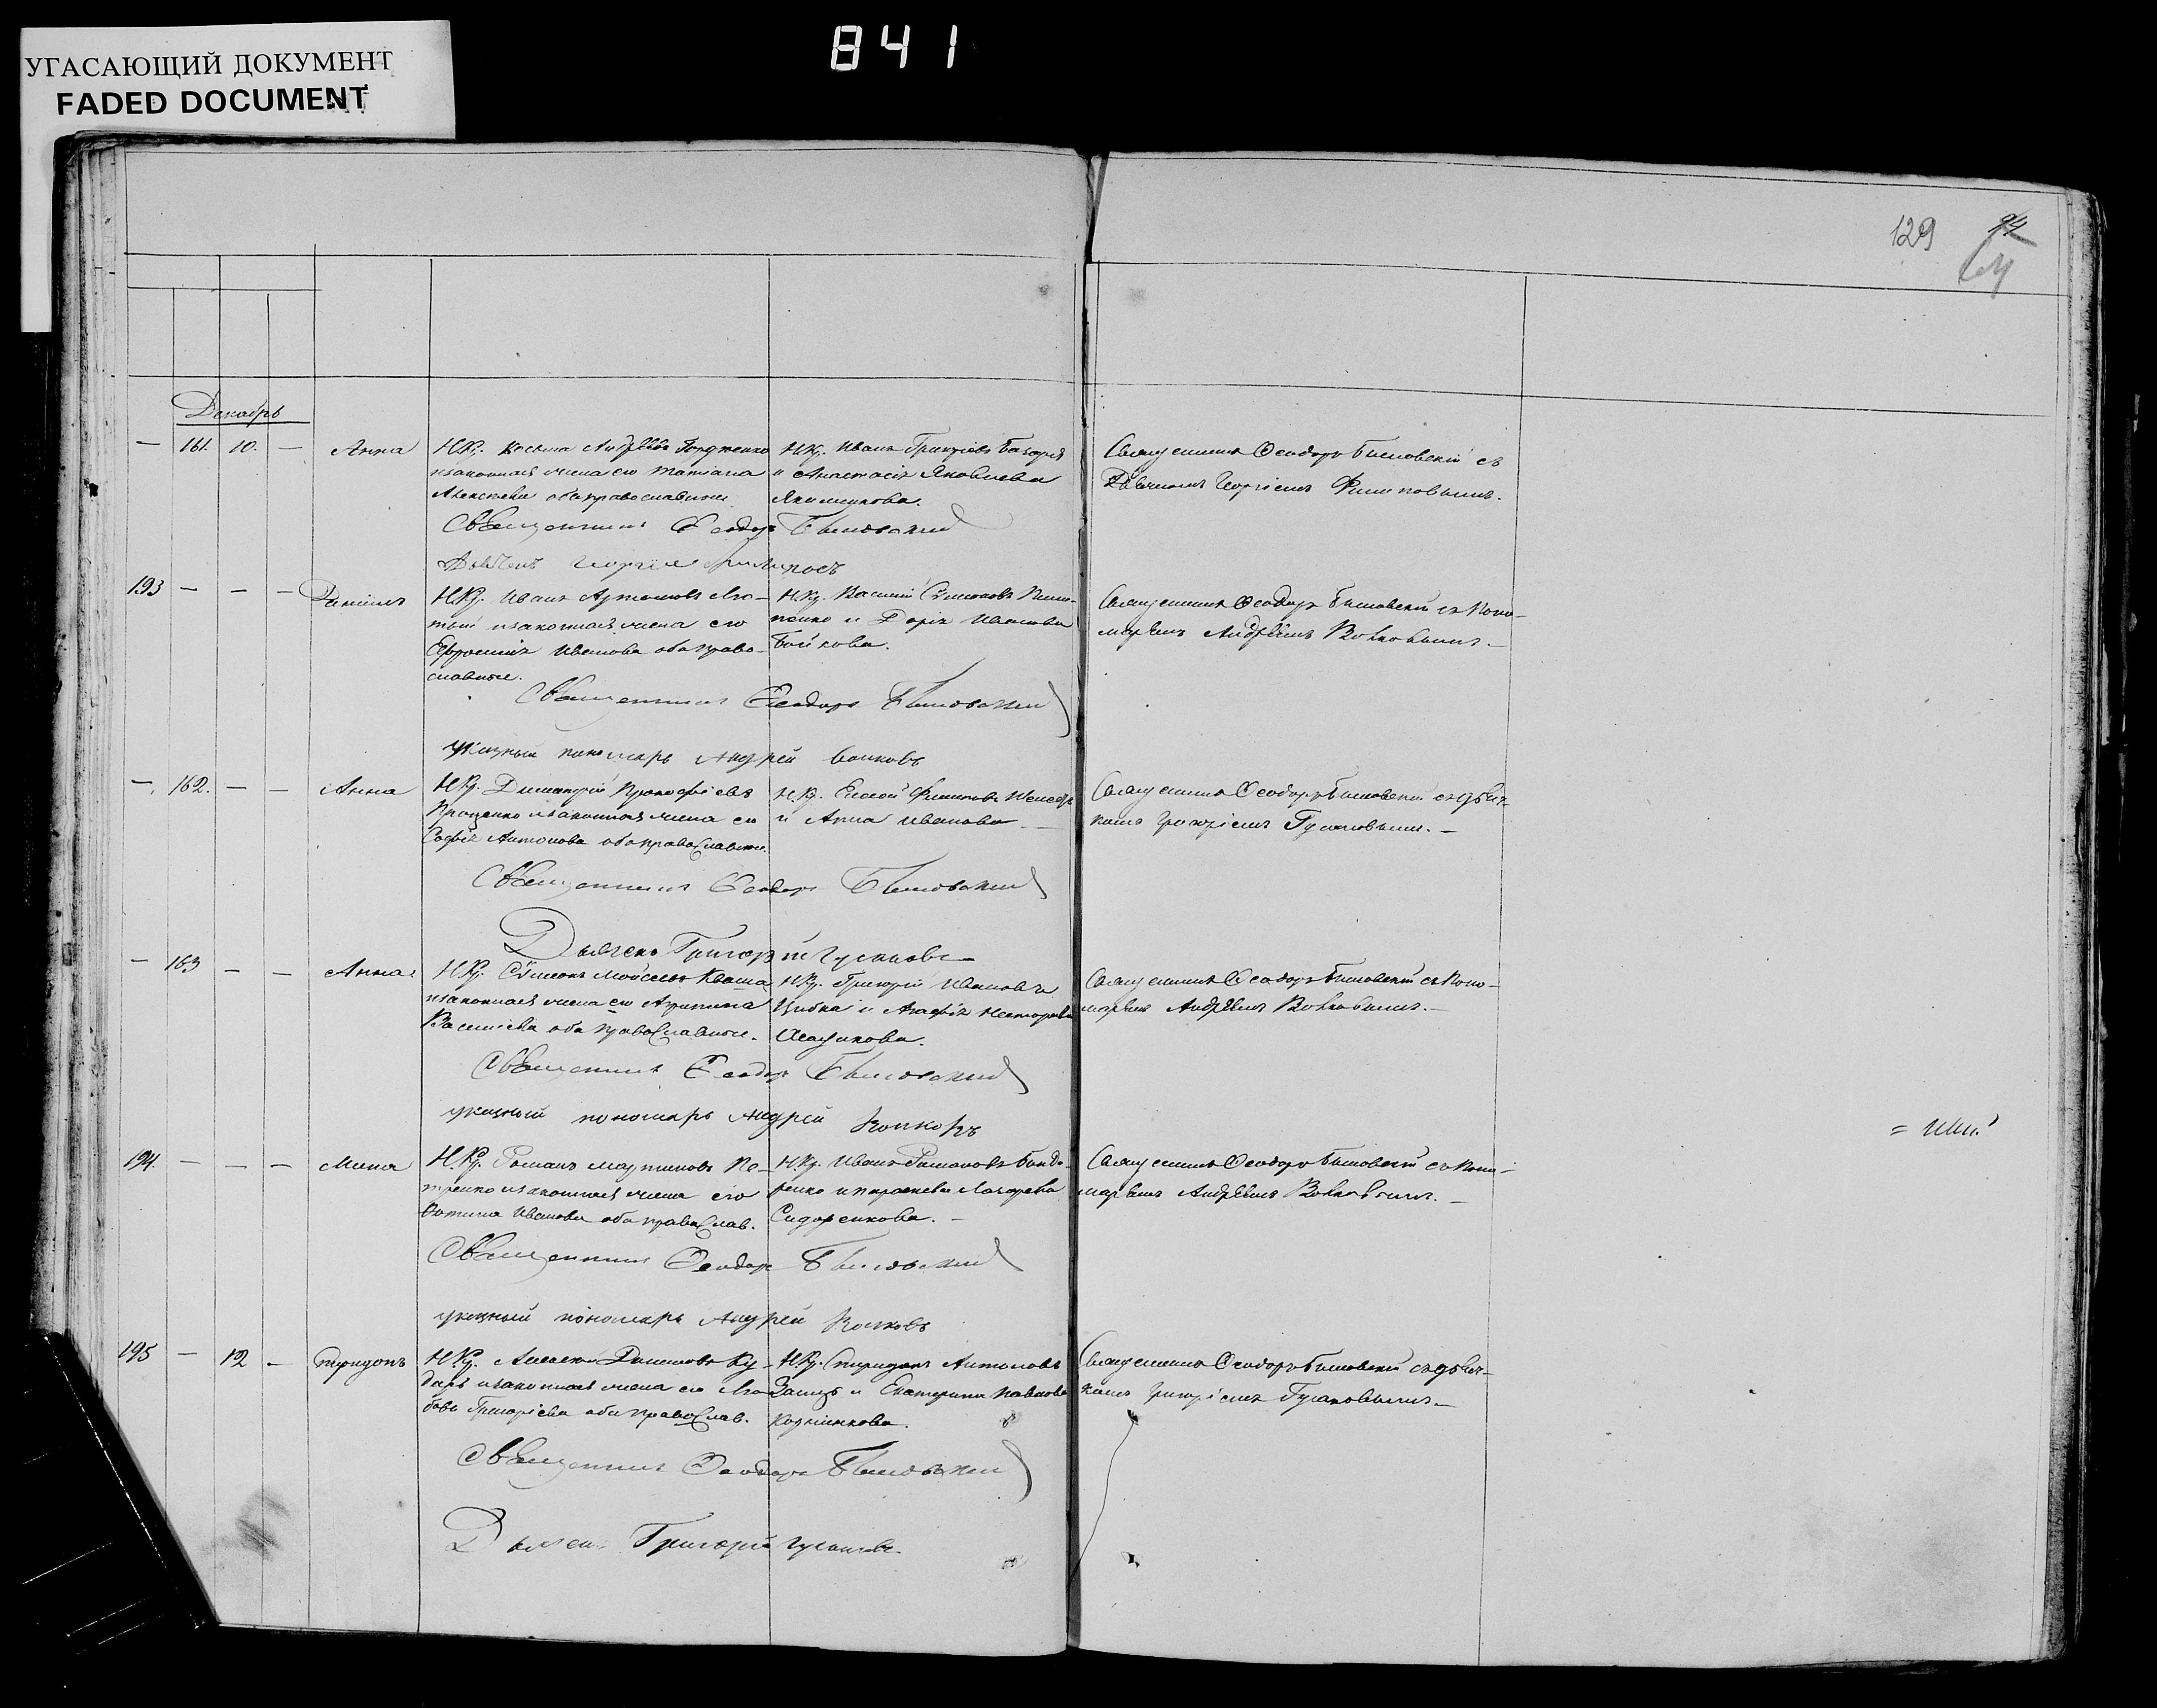 841
УГАСАЮЩИЙ ДОКУМЕНТ
FADED DOCUMENT
129
Декабрь
— 161. 10. — Анна
Н.Кр. Косьма Андреевъ
изаконная жена его Татіана
Алексеева оба православныи
Н.Кр. Иванъ Григоріевъ
и Анастасія Яковлева
Якименкова.
Священникъ Ѳеодоръ Быловскій съ
Дьячкомъ Георгіемъ Филиповымъ.
Священникъ Ѳеодоръ Быловский
Дьячекъ Георгій Филиповъ
193 — — — Даніилъ
Н.Кр. Иванъ Артемовъ
изаконная жена его
Ефросинія Иванова оба право-
славные.
Н.Кр. Василій Сѵмеоновъ
и Дарія Иванова
Бойкова.
Священникъ Ѳеодоръ Быловскій съ Поно-
маремъ Андреемъ Волковымъ. —
Священникъ Ѳеодоръ Быловский
указный пономарь Андрей Волковъ
— 162. — — Анна
Н.Кр. Димитрій Прокофіевъ
Проценко изаконная жена его
Софія Антонова оба православные.
Н.Кр. Елисей Филиповъ
и Анна Иванова —
Священникъ Ѳеодоръ Быловскій съ дьяч-
комъ Григоріемъ Гусаковымъ. —
Священникъ Ѳеодоръ Быловский
Дьячекъ Григорій Гусаковъ
— 163 — — Анна
Н.Кр. Сѵмеонъ Мойсеевъ Кваша
изаконная жена его Агрипина
Василіева оба православные.
Н.Кр. Григорій Ивановъ
Цыбка и Агафія Несторова
Священникъ Ѳеодоръ Быловскій съ Поно-
маремъ Андреемъ Волковымъ. —
Священникъ Ѳеодоръ Быловский
указный пономарь Андрей Волковъ
194. — — — Мина
Н.Кр. Романъ Мартиновъ Пе-
тренко изаконная жена его
Фотина Иванова оба православ.
Н.Кр. Иванъ Романовъ Бонда-
ренко и Параскева Лазорева
Сидоренкова. —
Священникъ Ѳеодоръ Быловскій съ Поно-
маремъ Андреемъ Волковымъ. —
Священникъ Ѳеодоръ Быловский
указный пономарь Андрей Волковъ
195 — 12 — Спиридонъ
Н.Кр. Алексей Даниловъ Ку-
изаконная жена его Лю-
бовь Григоріева оба православ.
Н.Кр. Спиридонъ Антоновъ
Заяцъ и Екатерина Павлова
Корніенкова.
Священникъ Ѳеодоръ Быловскій съ дьяч-
комъ Григоріемъ Гусаковымъ. —
Священникъ Ѳеодоръ Быловский
Дьячекъ Григорій Гусаковъ